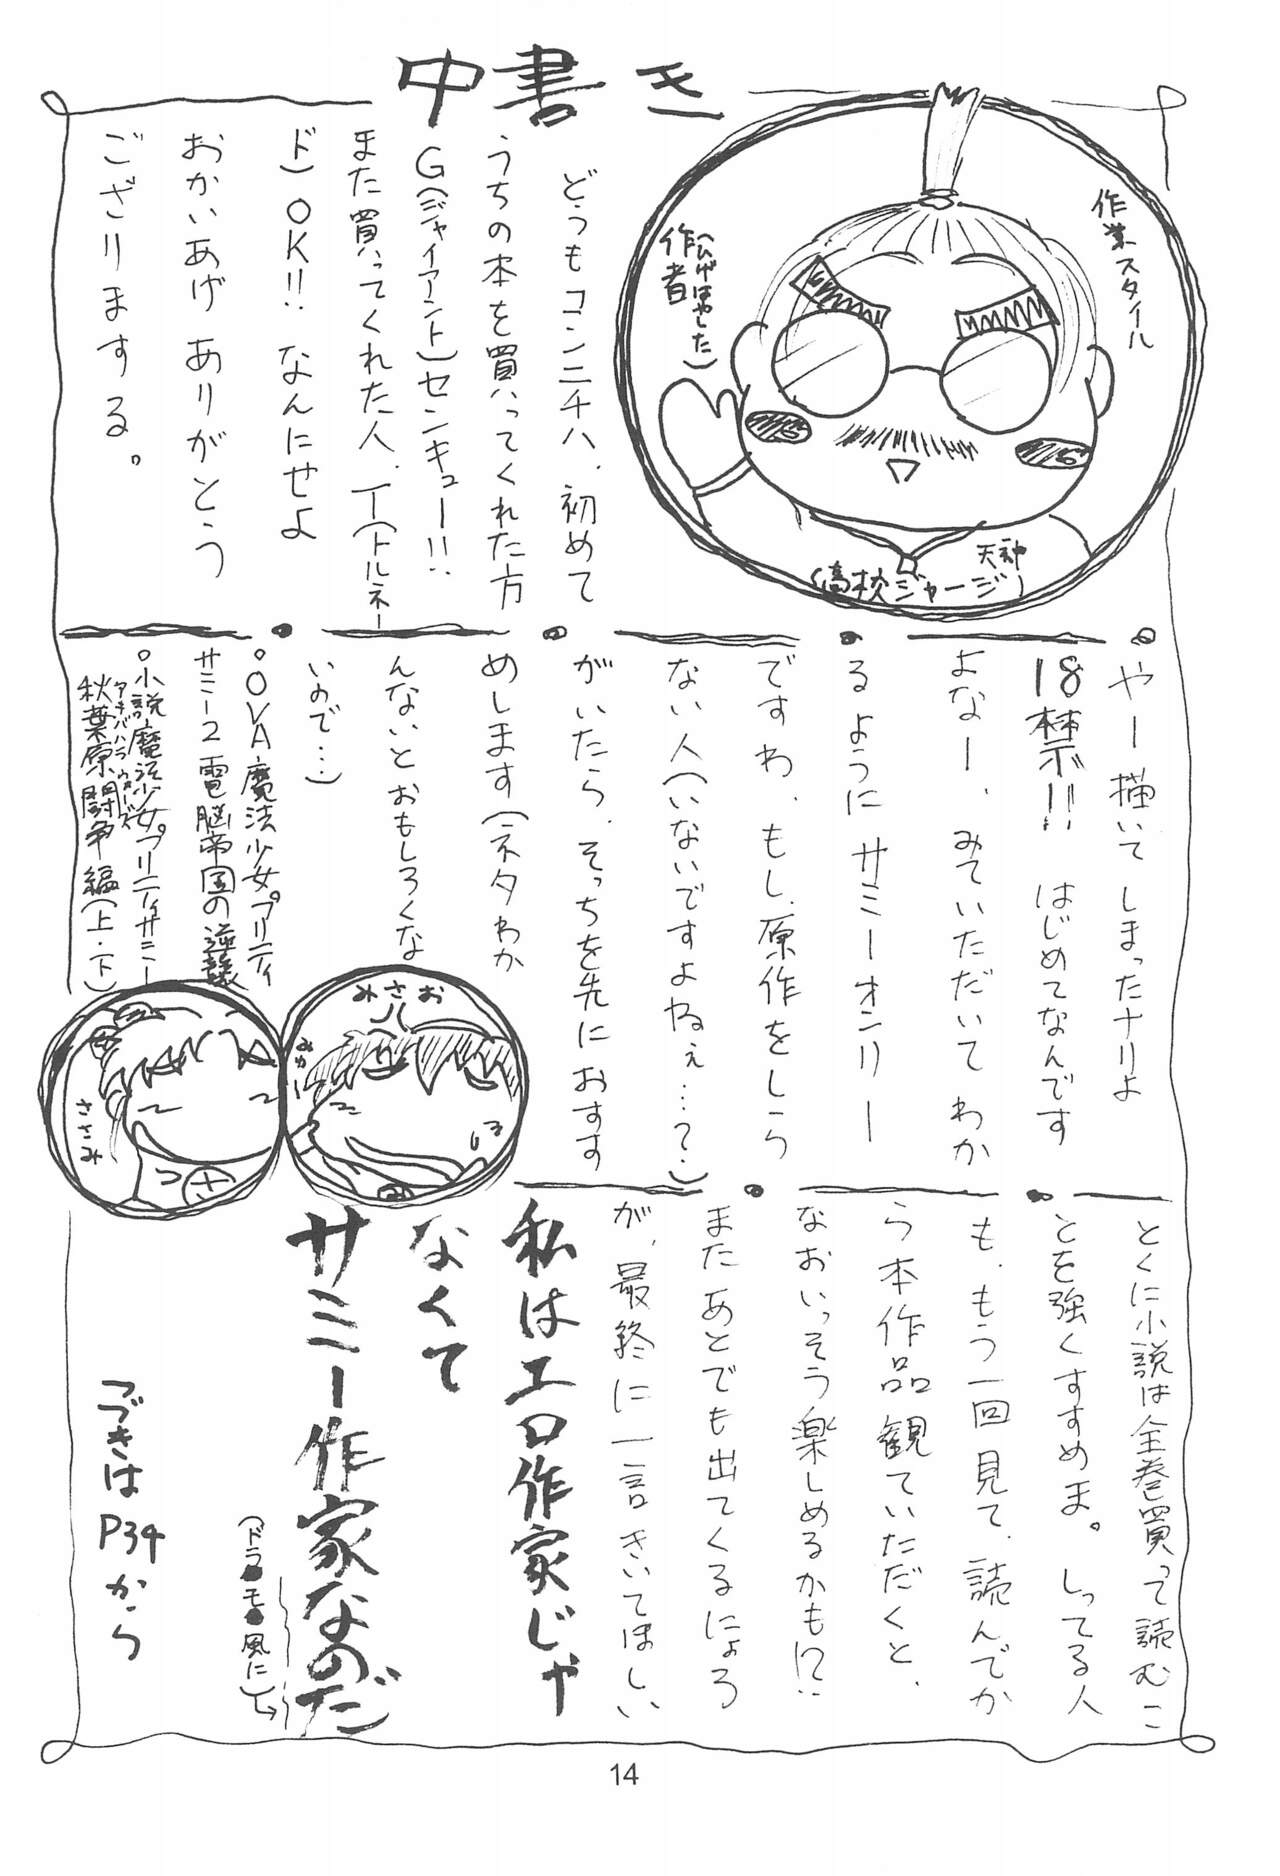 中書き
どうもコンニチハ、初めて
うちの本を買ってくれた方
G(ジャイアント)センキュー!!
また買ってくれた人、T(トルネー
ド)OK!! なんにせよ
おかいあげありがとう
ござりまする。
作業スタイル
作者
(ひげはやした)
天神
(高校ジャージ)
やー描いてしまったナリよ
18禁!! はじめてなんです
よなー、みていただいてわか
るようにサミーオンリー
ですわ、もし、原作をしら
ない人(いないですよねぇ…?)
がいたら、そっちを先におすす
めします(ネタわか
んないとおもしろくな
いので…)
○OVA魔法少女プリティ
サミー2電脳帝国の逆襲
○小説魔法少女プリティサミー
アキハバラウォーズ
秋葉原闘争編(上・下)
みさお
みかー
しる
ささみ
さ
とくに小説は全巻買って読むこ
とを強くすすめま。しってる人
も、もう一回見て、読んでか
ら本作品観ていただくと、
なおいっそう楽しめるかも!?
またあとでも出てくるにょろ
が、最終に一言きいてほしい
私はエロ作家じゃ
なくて
サミー作家なのだ
(ドラ●モ●風に)
つづきはP34から
14